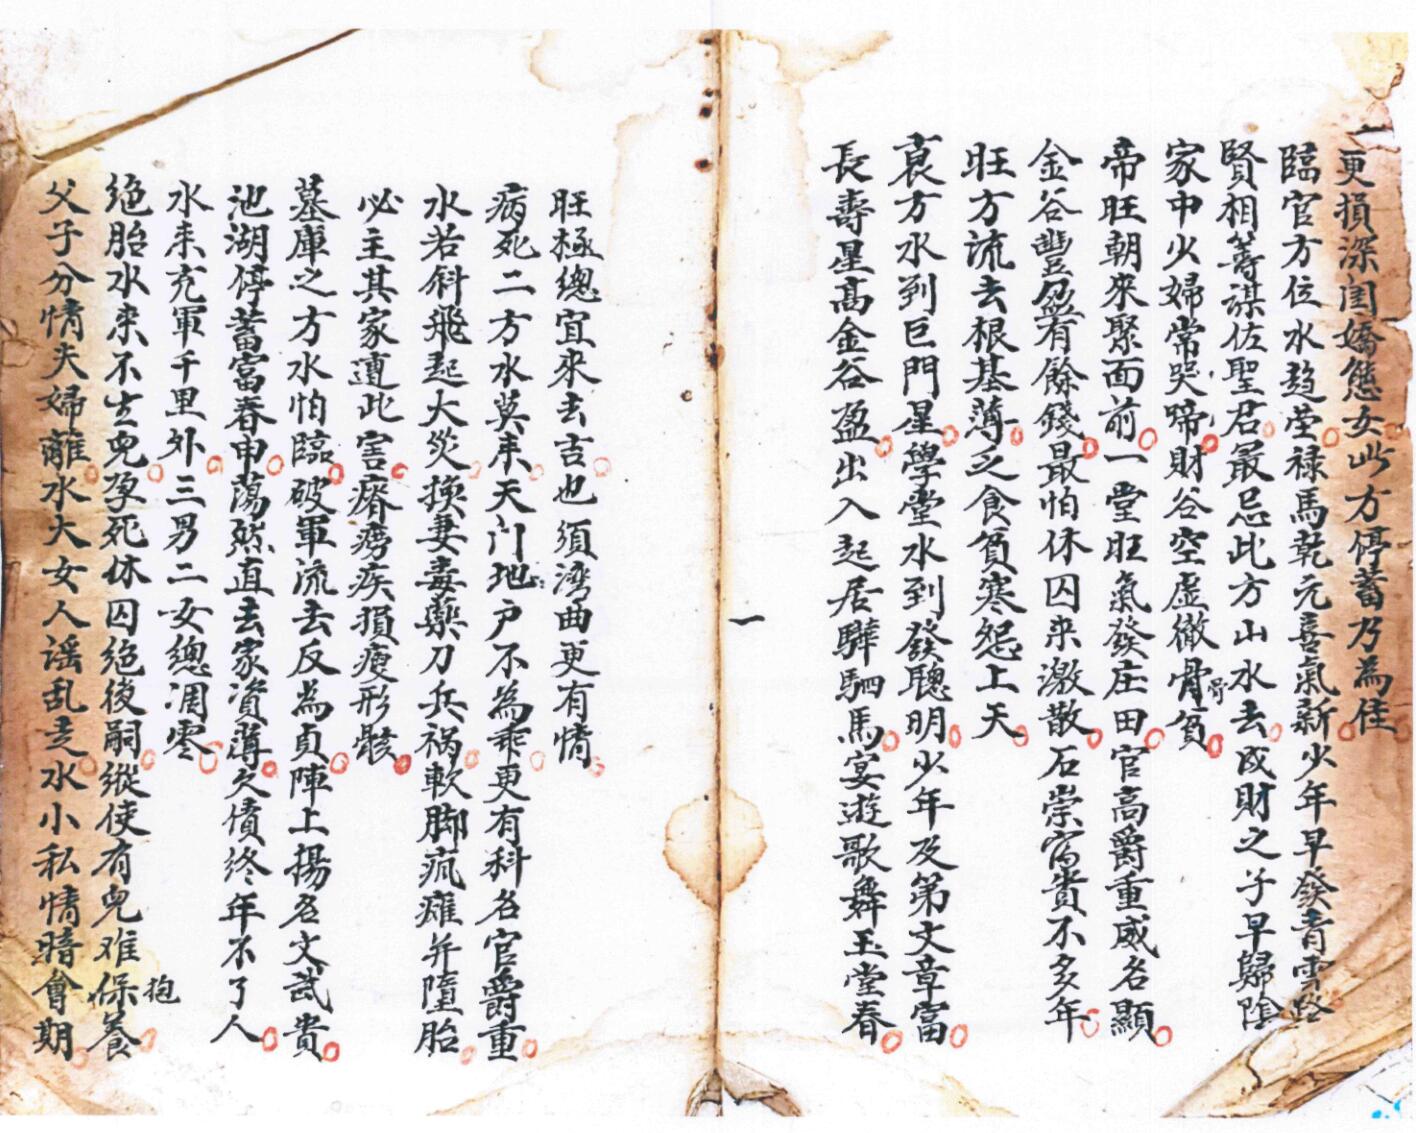 更損深闺嬌態女此方停蓄乃為佳
臨官方位水趋堂禄馬乾元喜氣新少年早發青雲路
賢相籌謀佐聖君最忌此方山水去成財之子早歸陰
家中少婦常哭啼財谷空虛徹骨貧
骨
帝旺朝來聚面前一堂旺氣發庄田官高爵重威名顯
金谷豐盈有餘錢最怕休囚来激散石崇富貴不多年
旺方流去根基薄乏食貧寒怨上天
衰方水到巨門星學堂水到發聰明少年及第文章富
長壽星高金谷盈出入起居驊駟馬宴遊歌舞玉堂春
一
旺極總宜來去吉也須湾曲更有情
病死二方水莫来天门地户不為乖更有科名官爵重
水若斜飛起大災換妻毒藥刀兵祸軟脚疯癱并墮胎
必主其家遭此害癆疾損瘦形骸
墓庫之方水怕臨破軍流去反為貞陣上揚名文武貴
池湖停蓄富春申蕩然直去家資薄欠債终年不了人
水来充軍千里外三男二女總凋零
绝胎水来不生兒孕死休囚绝後嗣縱使有兒难保養
抱
父子分情夫婦離水大女人谣乱走水小私情暗會期